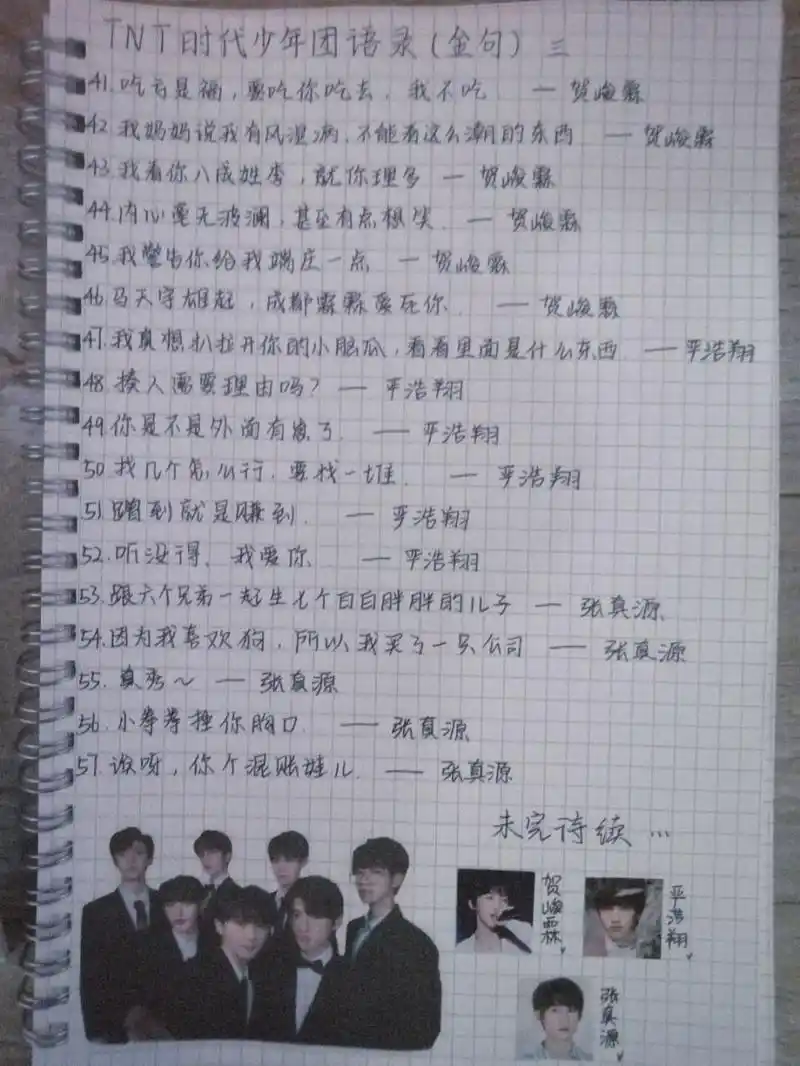 TNT时代少年团语录(金句) 三
41.吃亏是福，要吃你吃去，我不吃 — 贺峻霖
42.我妈妈说我有风湿病，不能看这么潮的东西 — 贺峻霖
43.我看你八成姓李，就你理多 — 贺峻霖
44.内心毫无波澜，甚至有点想笑. — 贺峻霖
45.我警告你给我端庄一点 — 贺峻霖
46.马天宇雄起，成都霖霖爱死你. — 贺峻霖
47.我真想扒拉开你的小脑瓜，看看里面是什么东西 — 严浩翔
48.揍人需要理由吗？ — 严浩翔
49.你是不是外面有崽了. — 严浩翔
50.找几个怎么行，要找一堆. — 严浩翔
51.蹭到就是赚到. — 严浩翔
52.听没得，我爱你. — 严浩翔
53.跟六个兄弟一起生七个白白胖胖的儿子 — 张真源
54.因为我喜欢狗，所以我买了一只公司 — 张真源
55.真秀～ — 张真源
56.小拳拳捶你胸口. — 张真源
57.哎呀，你个混账娃儿. — 张真源
未完待续…
贺峻霖
严浩翔
张真源